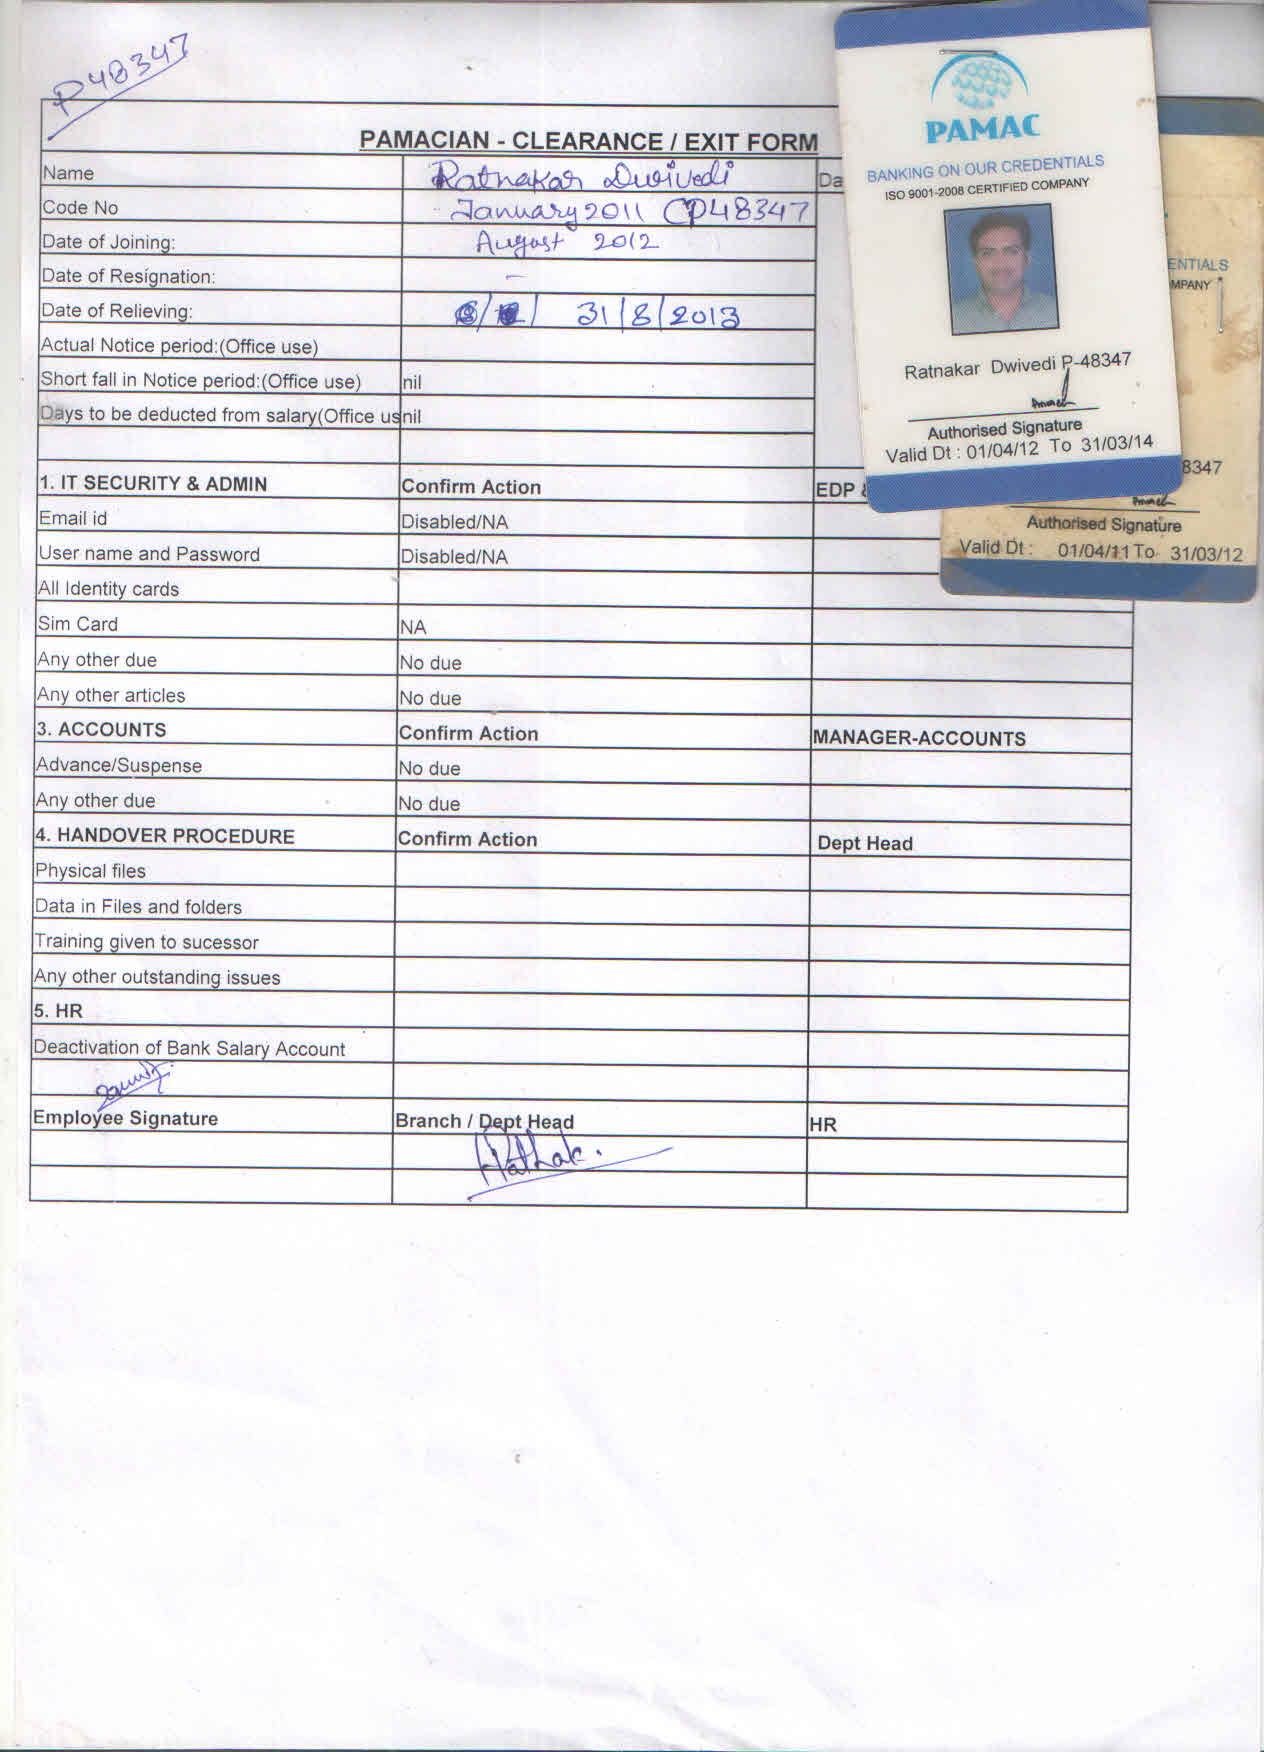 P48347
PAMACIAN - CLEARANCE / EXIT FORM
Name Ratnakar Dwivedi Da
Code No January 2011 (P48347
Date of Joining: August 2012
Date of Resignation: -
Date of Relieving: 31/8/2013
Actual Notice period:(Office use)
Short fall in Notice period:(Office use) nil
Days to be deducted from salary(Office us nil
1. IT SECURITY & ADMIN Confirm Action EDP &
Email id Disabled/NA
User name and Password Disabled/NA
All Identity cards
Sim Card NA
Any other due No due
Any other articles No due
3. ACCOUNTS Confirm Action MANAGER-ACCOUNTS
Advance/Suspense No due
Any other due No due
4. HANDOVER PROCEDURE Confirm Action Dept Head
Physical files
Data in Files and folders
Training given to sucessor
Any other outstanding issues
5. HR
Deactivation of Bank Salary Account
Employee Signature Branch / Dept Head HR
PAMAC
BANKING ON OUR CREDENTIALS
ISO 9001-2008 CERTIFIED COMPANY
Ratnakar Dwivedi P-48347
Authorised Signature
Valid Dt : 01/04/12 To 31/03/14
ENTIALS
MPANY
8347
Authorised Signature
Valid Dt : 01/04/11 To 31/03/12